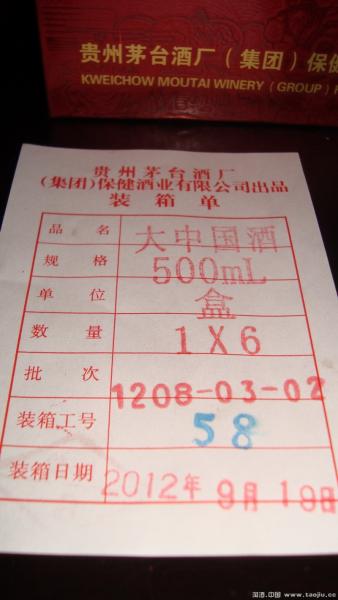 贵州茅台酒厂（集团）保健
KWEICHOW MOUTAI WINERY (GROUP) H
贵州茅台酒厂
(集团)保健酒业有限公司出品
装箱单
品名 大中国酒
规格 500mL
单位 盒
数量 1X6
批次 1208-03-02
装箱工号 58
装箱日期 2012年 9月19日
淘酒.中国 www.taojiu.cc